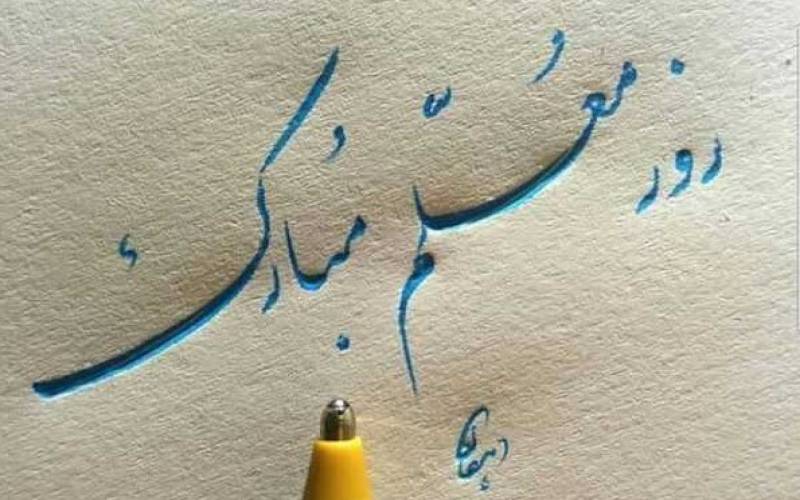 روز مُعلّم مُبارک